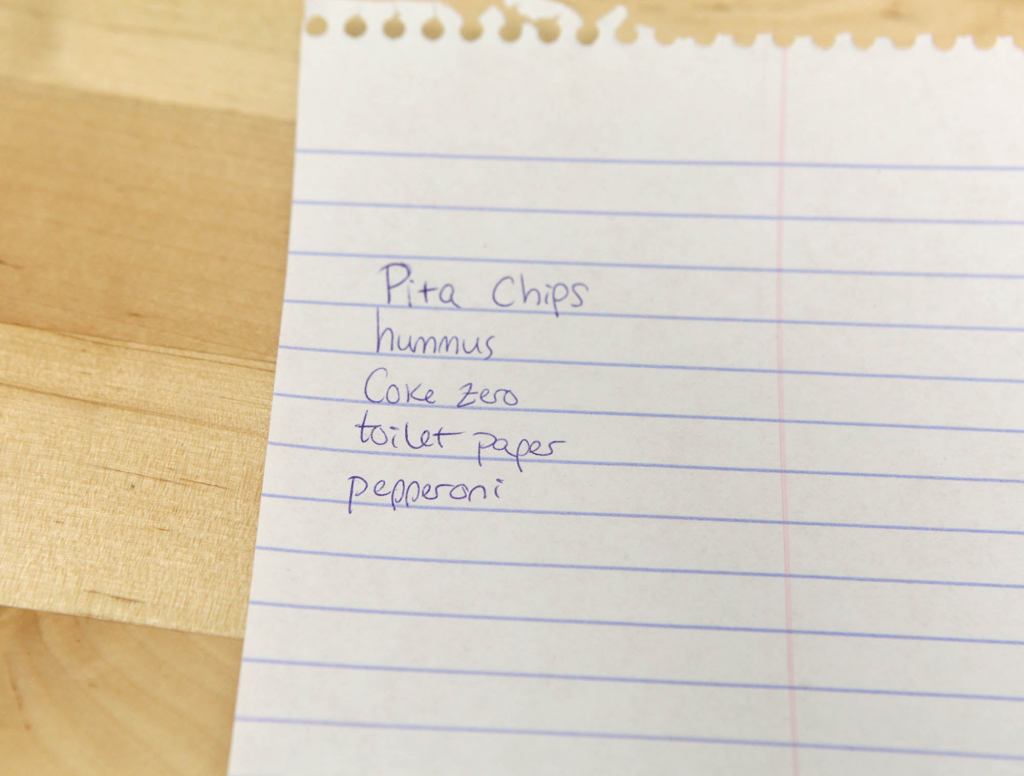 Pita Chips
hummus
Coke zero
toilet paper
pepperoni